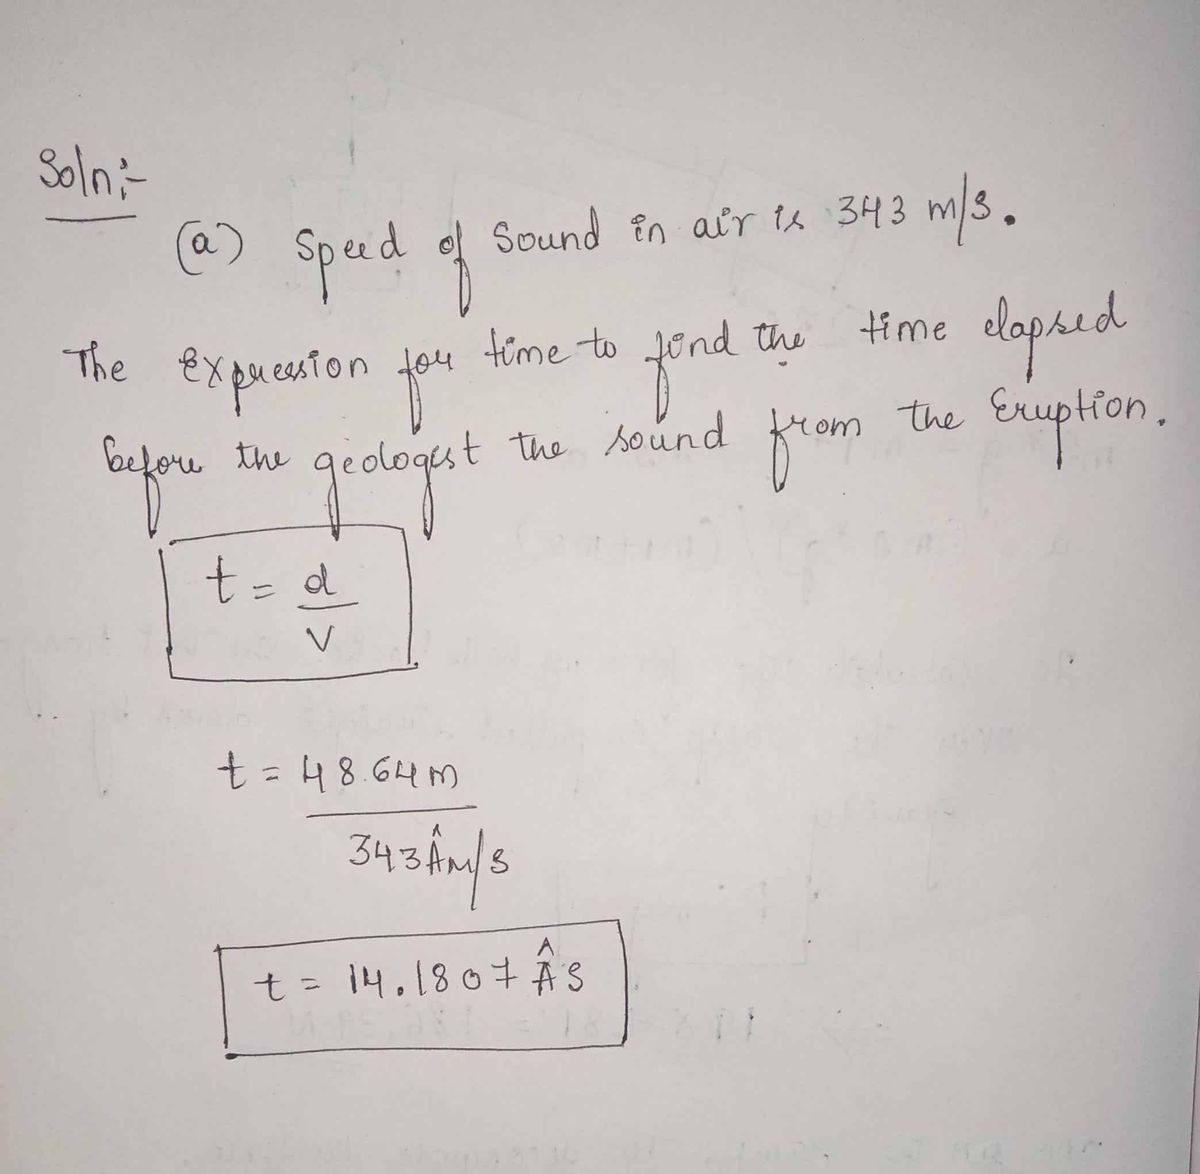 Soln:-
(a) Speed of Sound in air is 343 m/s.
The Expression for time to find the time elapsed
before the geologist the sound from the Eruption.
t = d
V
t = 48.64m
343Âm/s
t = 14.1807 Âs